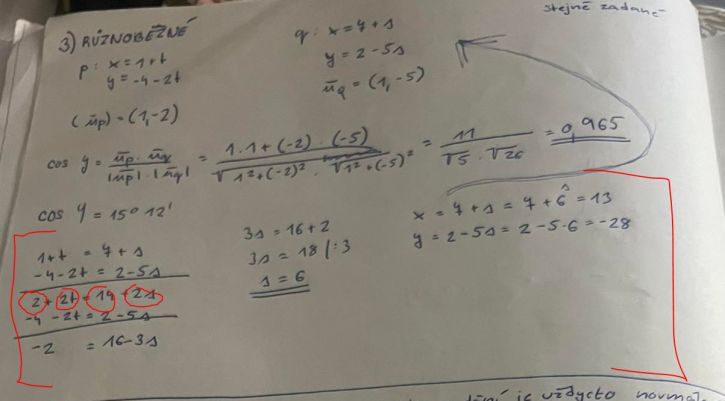 stejně zadané
3) RŮZNOBĚŽNÉ
p: x = 1+t
y = -4-2t
q: x = 7+s
y = 2-5s
ūq = (1,-5)
(ūp) = (1,-2)
cos φ = ūp · ūq / |ūp| · |ūq| = 1·1+(-2)·(-5) / √1²+(-2)² · √1²+(-5)² = 11 / √5 · √26 = 0,965
cos φ = 15° 12'
1+t = 7+s
-4-2t = 2-5s
2+2t = 14+2s
-4-2t = 2-5s
-2 = 16-3s
3s = 16+2
3s = 18 /:3
s = 6
x = 7+s = 7+6 = 13
y = 2-5s = 2-5·6 = -28
je vždycky